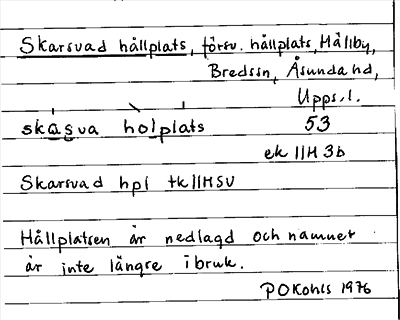 Skarsvad hållplats, försv. hållplats, Mällby,
Bredssn, Åsunda hd,
Upps. l.
skasva holplats 53
ek 11H 3b
Skarsvad hpl tk 11HSV
Hållplatsen är nedlagd och namnet
är inte längre i bruk.
POKohls 1976